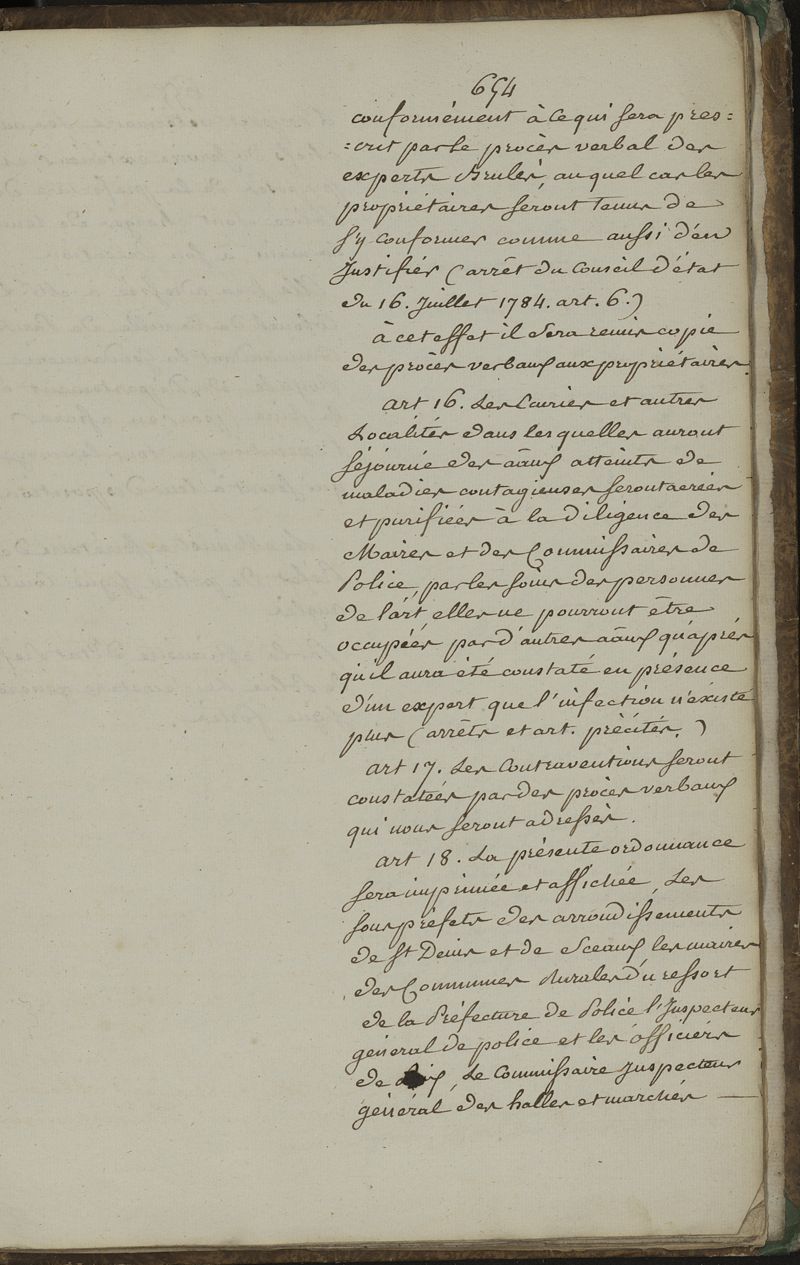 654
conformément à ce qui sera pres=
=crit par le procès verbal des
experts brulés, au quel cas les
propriétaires seront tenus de
s'y conformer comme aussi d'en
Justifier (arrêt du Conseil d'état
du 16. Juillet 1784. art. 6.)
à cet effet il Sera remis copie
des procès verbaux aux propriétaires.
art 16. Les Ecuries et autres
Localités dans les quelles auront
séjourné des aâux atteints de
maladies contagieuses seront aerées
et purifiées à la diligence des
Maires et des Commissaires de
Police, par les soins des personnes
de l'art elles ne pourront être
occupées par d'autres aâux qu'après
qu'il aura été constaté en présence
d'un expert que l'infection n'existe
plus (arrêts et art. précités.)
art 17. Les Contraventions seront
constatées par des procès verbaux
qui nous seront adressés.
art 18. La présente ordonnance
sera imprimée et affichée, Les
sous préfets des arrondissements
de St Denis et de Sceaux les maires
des Communes Rurales du ressort
de la Préfecture de Police l'Inspecteur
général de police et les officiers
de Paix, Le Commissaire Inspecteur
général des halles et marchés —